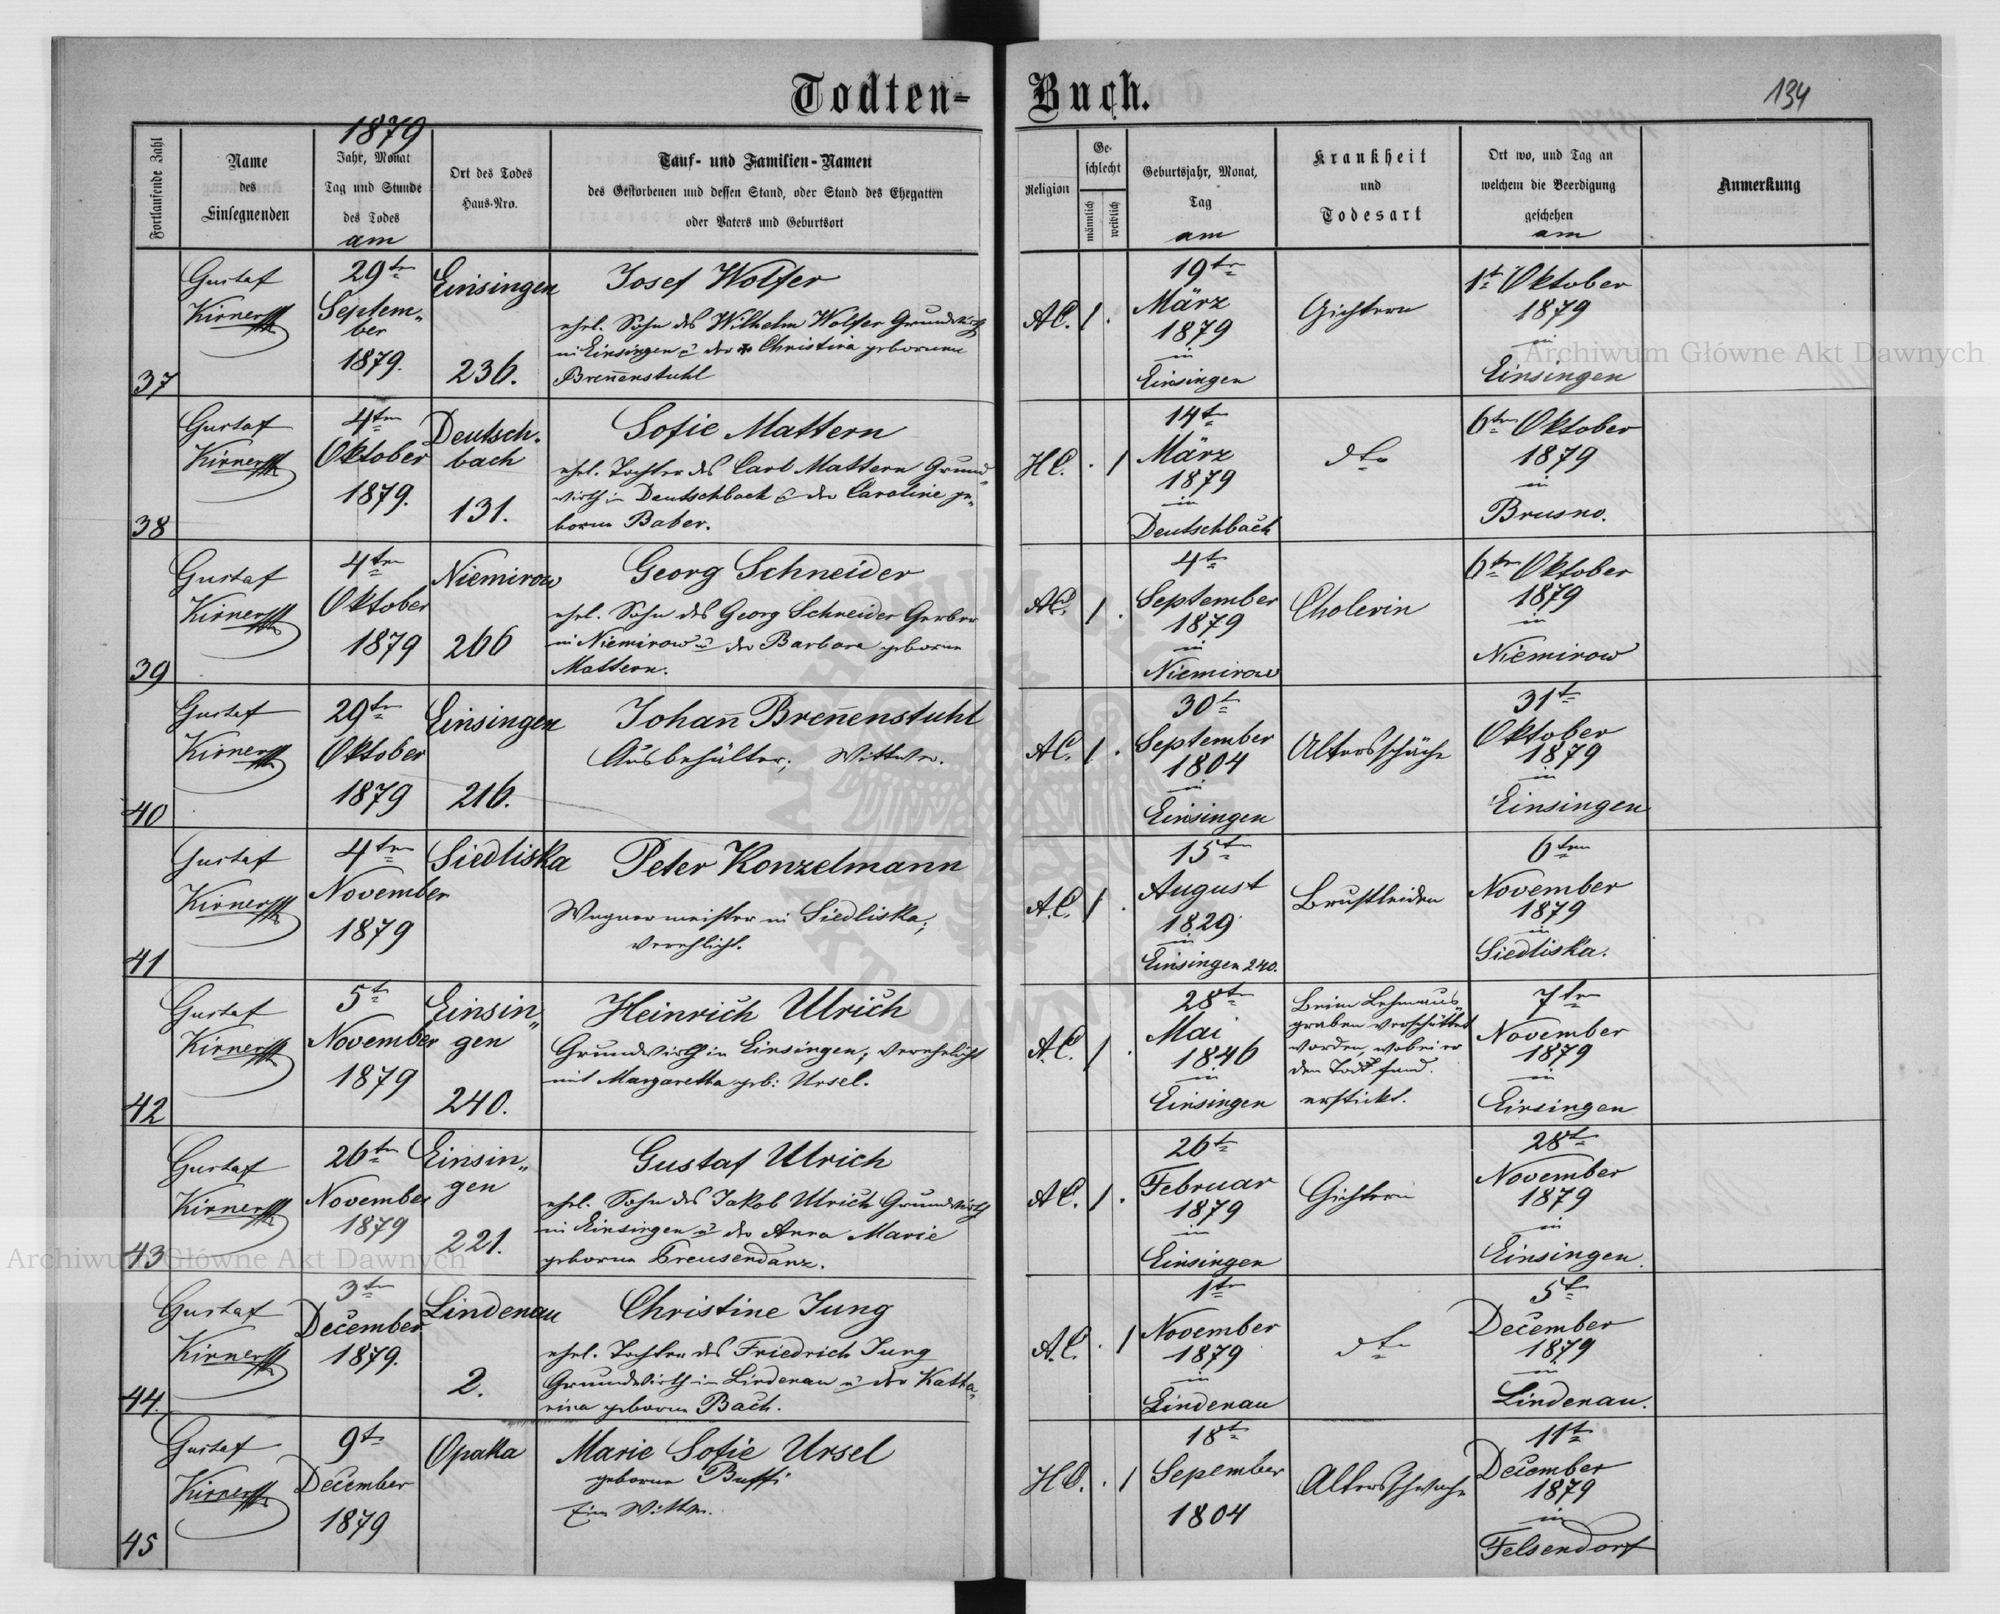 Todten-Buch.
134
1879
Fortlaufende Zahl
Name
des
Einsegnenden
Jahr, Monat
Tag und Stunde
des Todes
am
Ort des Todes
Haus-Nro.
Tauf- und Familien-Namen
des Gestorbenen und dessen Stand, oder Stand des Ehegatten
oder Vaters und Geburtsort
Religion
Ge-
schlecht
männlich
weiblich
Geburtsjahr, Monat,
Tag
am
Krankheit
und
Todesart
Ort wo, und Tag an
welchem die Beerdigung
geschehen
am
Anmerkung
37
Gustaf
Kirner
29tn
Septem-
ber
1879.
Einsingen
236.
Josef Wolfer
ehel. Sohn des Wilhelm Wolfer Grundwirth
in Einsingen u der Christina geborene
Breñenstuhl
A.C.
1 .
19tn
März
1879
in
Einsingen
Gichtern
1t Oktober
1879
in
Einsingen
38
Gustaf
Kirner
4tn
Oktober
1879.
Deutsch-
bach
131.
Sofie Mattern
ehel. Tochter des Carl Mattern Grund-
wirth in Deutschbach u der Caroline ge-
borne Baber.
H.C.
. 1
14tn
März
1879
in
Deutschbach
dto
6tn Oktober
1879
in
Brusno.
39
Gustaf
Kirner
4tn
Oktober
1879
Niemirow
266
Georg Schneider
ehel. Sohn des Georg Schneider Gerber
in Niemirow u der Barbara geborne
Mattern.
A.C.
1 .
4tn
September
1879
in
Niemirow
Cholerin
6tn Oktober
1879
in
Niemirow
40
Gustaf
Kirner
29tn
Oktober
1879
Einsingen
216.
Johañ Breñenstuhl
Ausbehälter; Wittwer.
A.C.
1 .
30t
September
1804
in
Einsingen
Altersschäche
31t
Oktober
1879
in
Einsingen
41
Gustaf
Kirner
4tn
November
1879
Siedliska
Peter Konzelmann
Wagnermeister in Siedliska;
verehlicht.
A.C.
1 .
15tn
August
1829
in
Einsingen 240.
Brustleiden
6tn
November
1879
in
Siedliska.
42
Gustaf
Kirner
5t
November
1879
Einsin-
gen
240.
Heinrich Ulrich
Grundwirth in Einsingen; verehelicht
mit Margaretha geb: Ursel.
A.C.
1 .
28tn
Mai
1846
in
Einsingen
Beim Lehmaus-
graben verschüttet
worden, wobei er
den Tod fand.
erstickt.
7tn
November
1879
in
Einsingen
43
Gustaf
Kirner
26tn
November
1879
Einsin-
gen
221.
Gustaf Ulrich
ehel. Sohn des Jakob Ulrich Grundwirth
in Einsingen u der Anna Marie
geborne Treusendanz.
A.C.
1 .
26t
Februar
1879
in
Einsingen
Gichtern
28t
November
1879
in
Einsingen.
44.
Gustaf
Kirner
3tn
December
1879.
Lindenau
2.
Christine Jung
ehel. Tochter des Friedrich Jung
Grundwirth in Lindenau u der Katha-
rina geborne Bach.
A.C.
. 1
1tn
November
1879
in
Lindenau
dto
5t
December
1879
in
Lindenau.
45
Gustaf
Kirner
9t
December
1879
Opaka
Marie Sofie Ursel
geborne Buffi
Eine Wittwe.
H.C.
. 1
18t
Sepember
1804
Altersschwäche
11t
December
1879
in
Felsendorf
Archiwum Główne Akt Dawnych
Archiwum Główne Akt Dawnych
ARCHIWUM GŁÓWNE AKT DAWNYCH